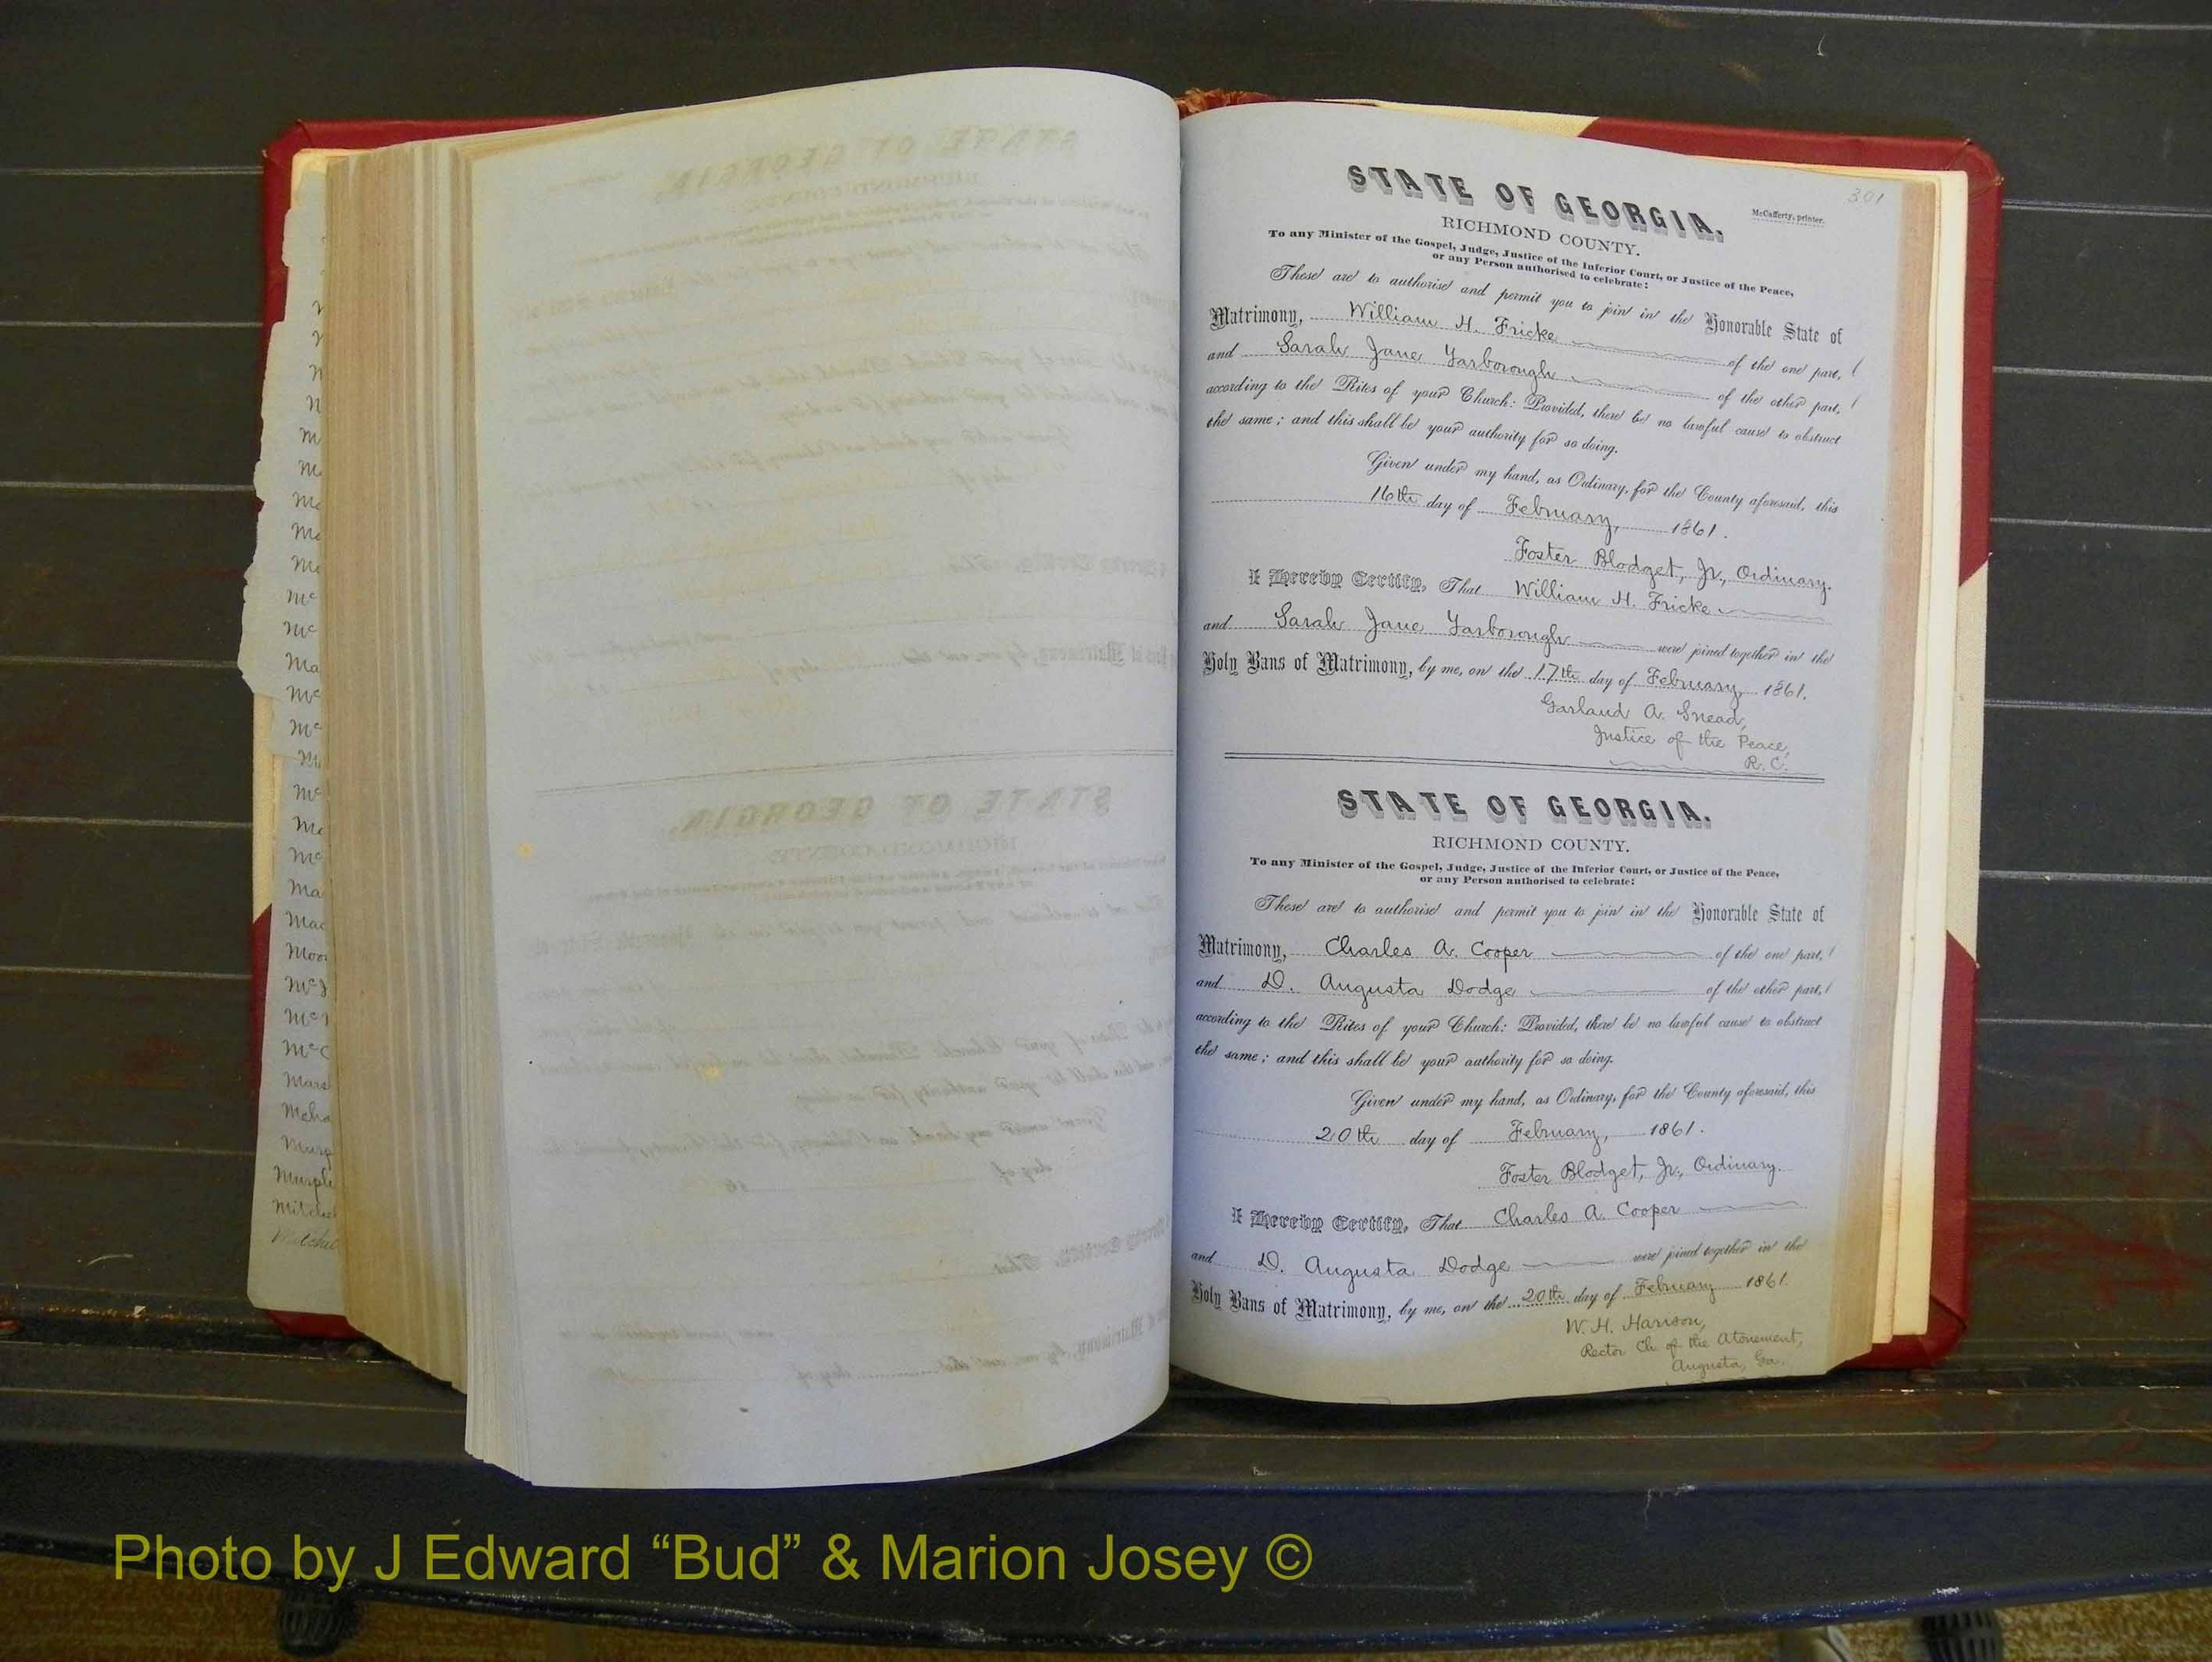 301
STATE OF GEORGIA.
McCafferty, printer.
RICHMOND COUNTY.
To any Minister of the Gospel, Judge, Justice of the Inferior Court, or Justice of the Peace,
or any Person authorised to celebrate:
These are to authorise and permit you to join in the Honorable State of
Matrimony, William H. Fricke of the one part,
and Sarah Jane Yarborough of the other part,
according to the Rites of your Church: Provided, there be no lawful cause to obstruct
the same; and this shall be your authority for so doing.
Given under my hand, as Ordinary, for the County aforesaid, this
16th day of February, 1861.
Foster Blodget, Jr., Ordinary.
I Hereby Certify, That William H. Fricke
and Sarah Jane Yarborough were joined together in the
Holy Bans of Matrimony, by me, on the 17th day of February 1861.
Garland A. Snead,
Justice of the Peace,
R. C.
STATE OF GEORGIA.
RICHMOND COUNTY.
To any Minister of the Gospel, Judge, Justice of the Inferior Court, or Justice of the Peace,
or any Person authorised to celebrate:
These are to authorise and permit you to join in the Honorable State of
Matrimony, Charles A. Cooper of the one part,
and D. Augusta Dodge of the other part,
according to the Rites of your Church: Provided, there be no lawful cause to obstruct
the same; and this shall be your authority for so doing.
Given under my hand, as Ordinary, for the County aforesaid, this
20th day of February, 1861.
Foster Blodget, Jr., Ordinary.
I Hereby Certify, That Charles A. Cooper
and D. Augusta Dodge were joined together in the
Holy Bans of Matrimony, by me, on the 20th day of February 1861.
W. H. Harrison,
Rector Ch. of the Atonement,
Augusta, Ga.
Photo by J Edward “Bud” & Marion Josey ©